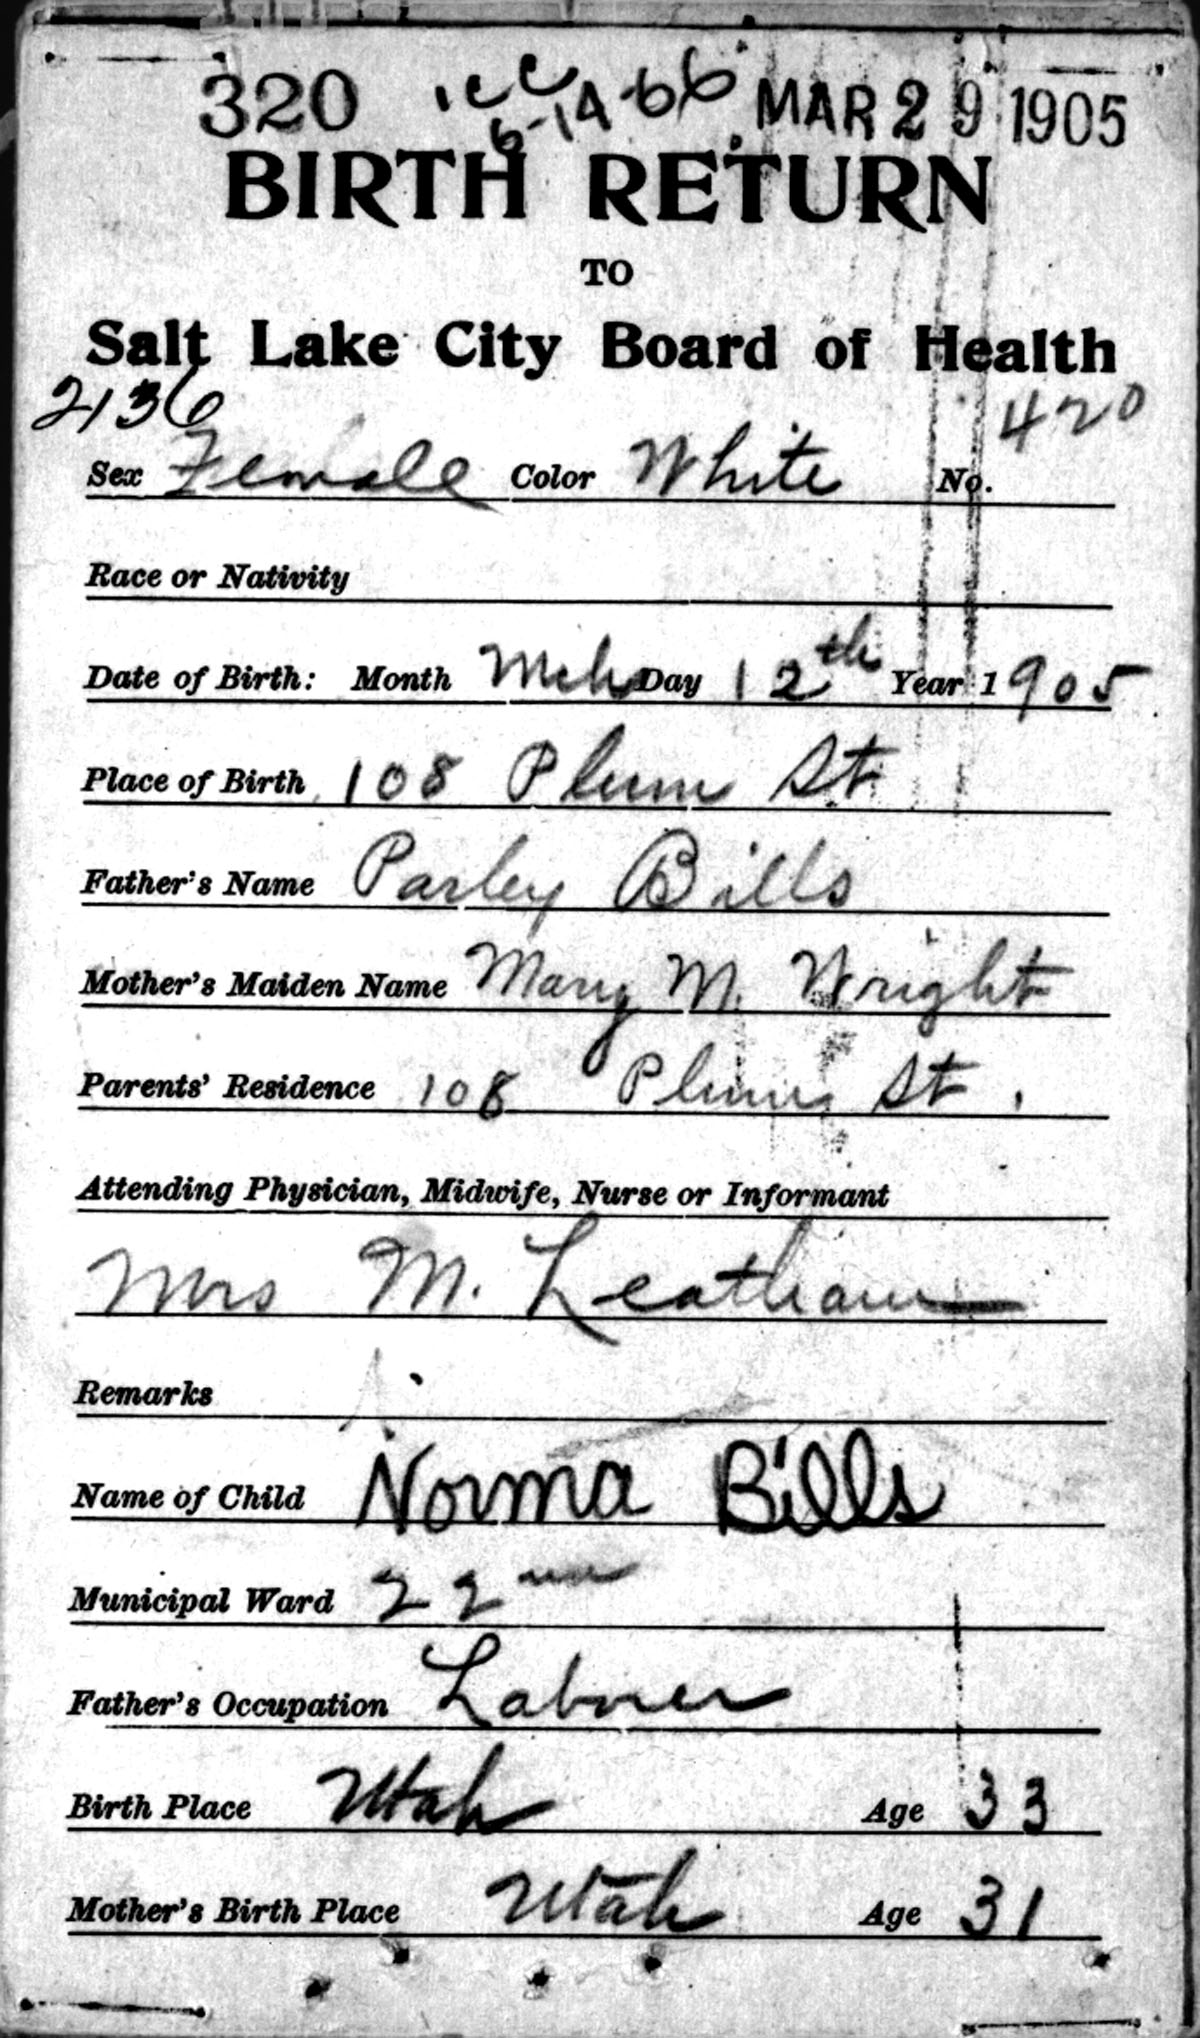 320 icc 6-14-66 MAR 29 1905
BIRTH RETURN
TO
Salt Lake City Board of Health
2136 420
Sex Female Color White No.
Race or Nativity
Date of Birth: Month Mch Day 12th Year 1905
Place of Birth 108 Plum St
Father's Name Parley Bills
Mother's Maiden Name Mary M. Wright
Parents' Residence 108 Plum St.
Attending Physician, Midwife, Nurse or Informant
Mrs M. Leatham
Remarks
Name of Child Norma Bills
Municipal Ward 22
Father's Occupation Laborer
Birth Place Utah Age 33
Mother's Birth Place Utah Age 31